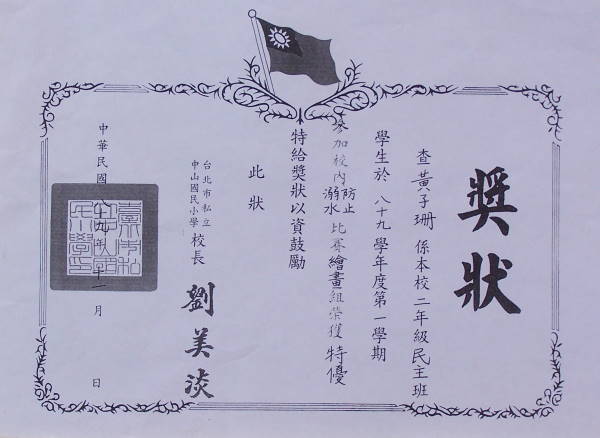 獎狀
查黃子珊係本校二年級民主班
學生於八十九學年度第一學期
參加校內防止溺水比賽繪畫組榮獲特優
特給獎狀以資鼓勵
此狀
台北市私立中山國民小學校長劉美淡
中華民國八十九年十一月 日